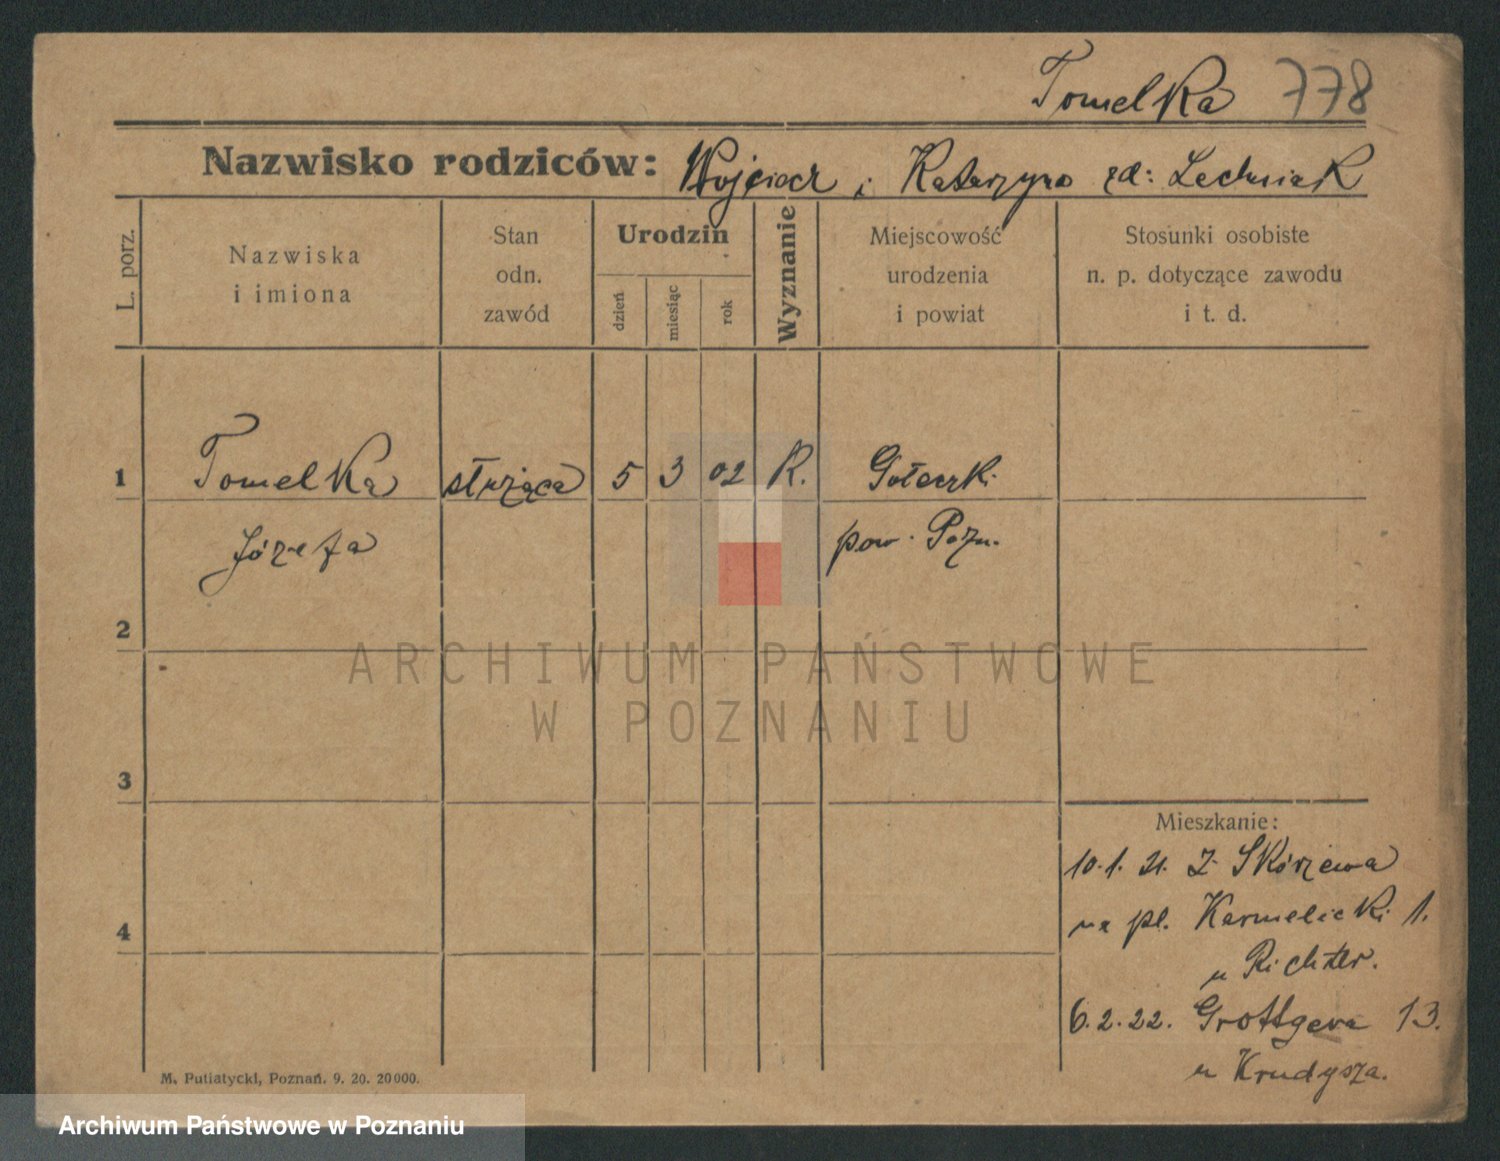 Tomelka 778
Nazwisko rodziców: Wojciech i Katarzyna zd: Lechniak
L. porz.
Nazwiska
i imiona
Stan
odn.
zawód
Urodzin
dzień
miesiąc
rok
Wyznanie
Miejscowość
urodzenia
i powiat
Stosunki osobiste
n. p. dotyczące zawodu
i t. d.
1 Tomelka służąca 5 3 02 R. Gołeczki
Józefa pow. Pozn.
2
ARCHIWUM PAŃSTWOWE
W POZNANIU
3
Mieszkanie:
10.1.21. z Skórzewa
na pl. Karmelicki 1.
4
u Richter.
6.2.22. Grottgera 13.
u Krudysza.
M. Putiatycki, Poznań. 9. 20. 20000.
Archiwum Państwowe w Poznaniu